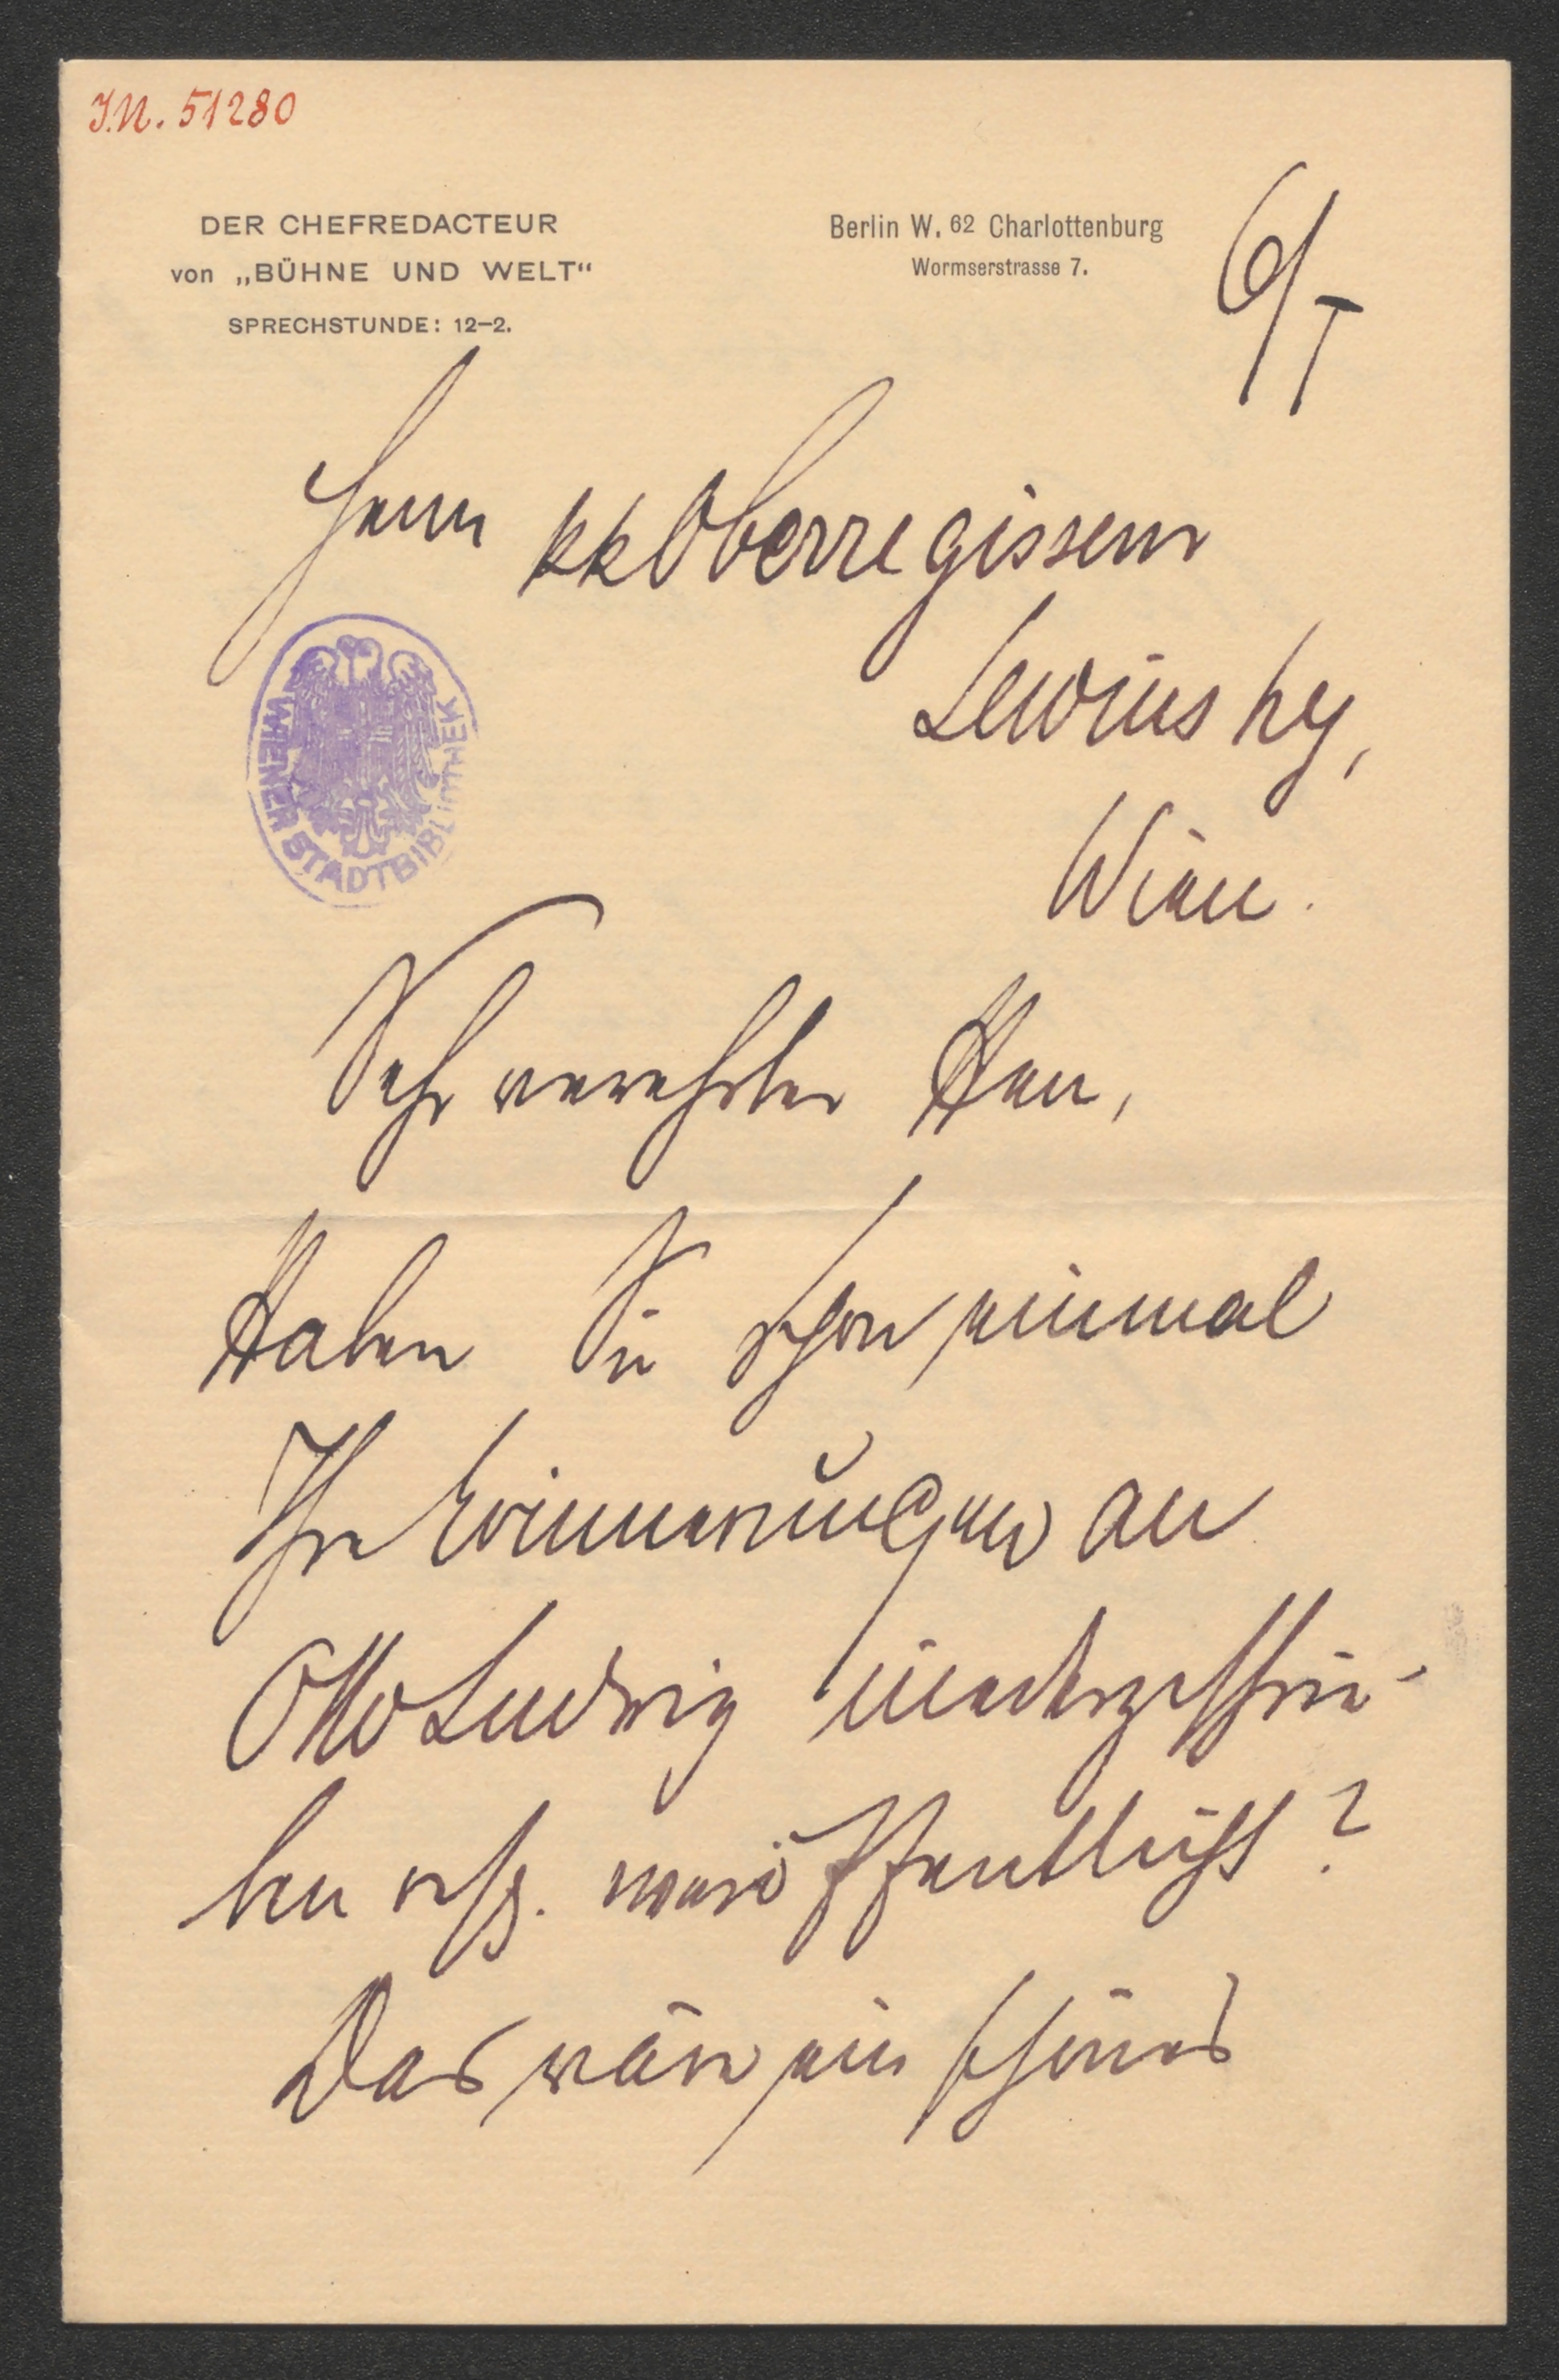 J.N. 51280
DER CHEFREDACTEUR
von „BÜHNE UND WELT“
SPRECHSTUNDE: 12–2.
Berlin W. 62 Charlottenburg
Wormserstrasse 7.
6/I
Herrn kk Oberregisseur
Lewinsky,
Wien.
WIENER STADTBIBLIOTHEK
Sehr verehrter Herr,
Haben Sie schon einmal
Ihre Erinnerungen an
Otto Ludwig niedergeschrie-
ben resp. veröffentlicht?
Das wäre ein schönes